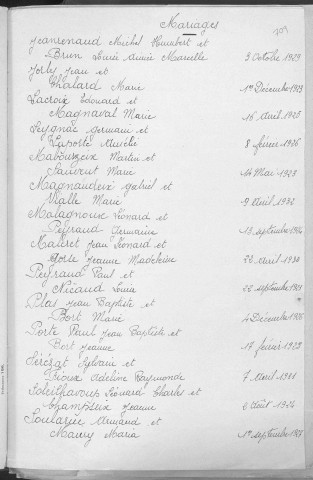 Mariages
Jeanrenaud Michel Humbert et
Brun Louise Aimée Marcelle 3 Octobre 1929
Jorly Jean et
Chalard Marie 1er Décembre 1923
Lacroix Edouard et
Magnaval Marie 16 avril 1925
Leygnac Germain et
Laporte 8 février 1926
Martin et
Sauvent Marie 14 Mai 1928
Magnaudeix Gabriel et
Vialle Marie 9 avril 1932
Malagnoux Léonard et
Peyraud Germaine 13 septembre 1924
Mauret Jean Léonard et
Jeanne Madeleine 22 avril 1930
Peyraud Paul et
Nicaud Louise 22 septembre
Plas Jean Baptiste et
Bort Marie 4 Décembre
Porte Paul Jean Baptiste et
Bort Jeanne 17 février 1923
Sylvain et
Adeline Raymonde 7 avril
Léonard Charles et
Champseix Jeanne 6 Août 1924
Soularue Armand et
Maury Maria 1er septembre 1927